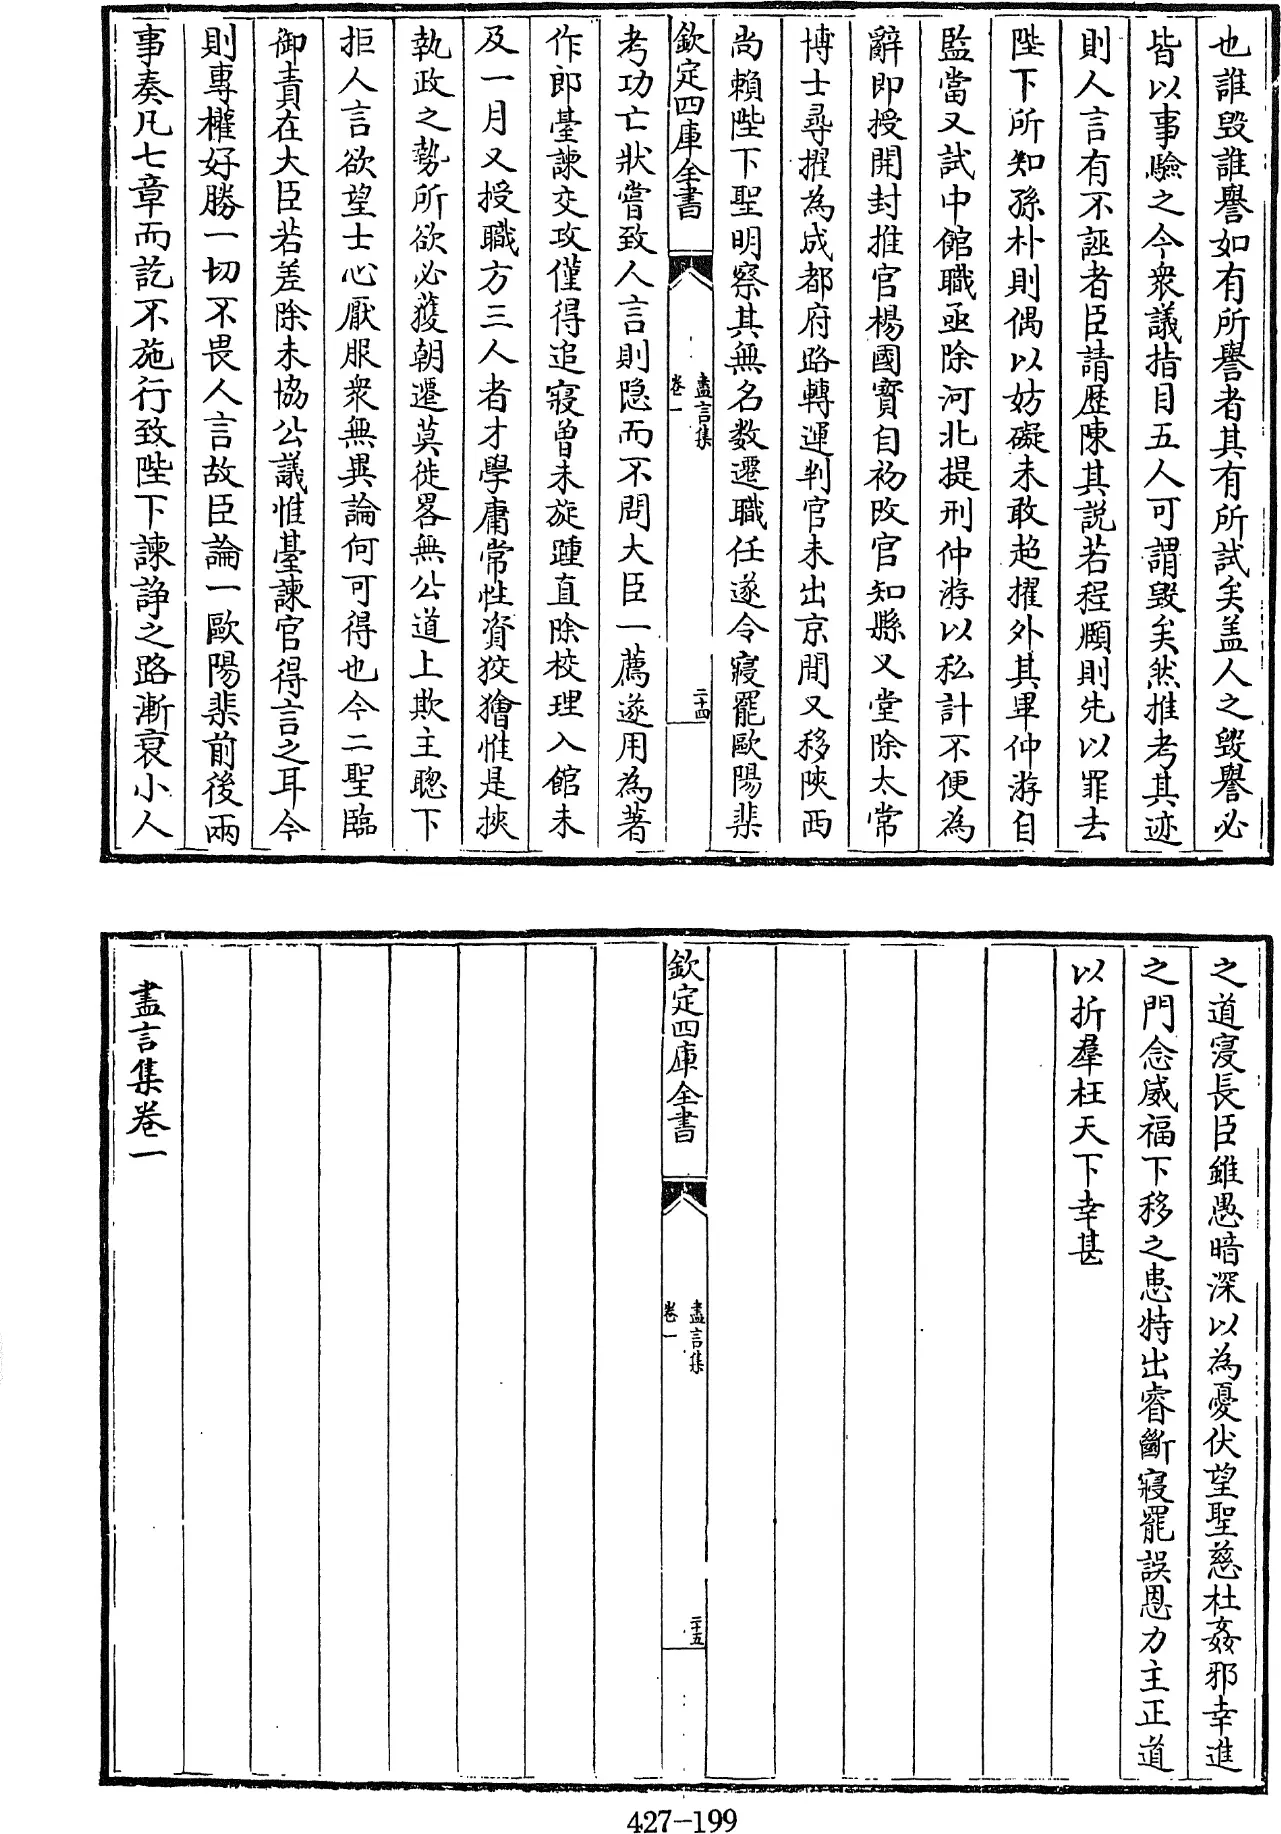 也誰毀誰譽如有所譽者其有所試矣盖人之毀譽必
皆以事驗之今衆議指目五人可謂毀矣然推考其迹
則人言有不誣者臣請歴陳其説若程頤則先以罪去
陛下所知孫朴則偶以妨礙未敢超擢外其畢仲游自
監當又試中館職亟除河北提刑仲游以私計不便為
辭即授開封推官楊國寳自初改官知縣又堂除太常
博士尋擢為成都府路轉運判官未出京間又移陝西
尚賴陛下聖明察其無名數遷職任遂令寢罷歐陽棐
欽定四庫全書
盡言集
卷一
二十四
考功亡狀嘗致人言則隐而不問大臣一薦遂用為著
作郎臺諫交攻僅得追寢曾未旋踵直除校理入館未
及一月又授職方三人者才學庸常性資狡獪惟是挾
執政之勢所欲必獲朝遷莫徙畧無公道上欺主聰下
拒人言欲望士心厭服衆無異論何可得也今二聖臨
御責在大臣若差除未協公議惟臺諫官得言之耳今
則專權好勝一切不畏人言故臣論一歐陽棐前後兩
事奏凡七章而訖不施行致陛下諫諍之路漸衰小人
之道寖長臣雖愚暗深以為憂伏望聖慈杜姦邪幸進
之門念威福下移之患特出睿斷寢罷誤恩力主正道
以折羣枉天下幸甚
欽定四庫全書
盡言集
卷一
二十五
盡言集卷一
427-199